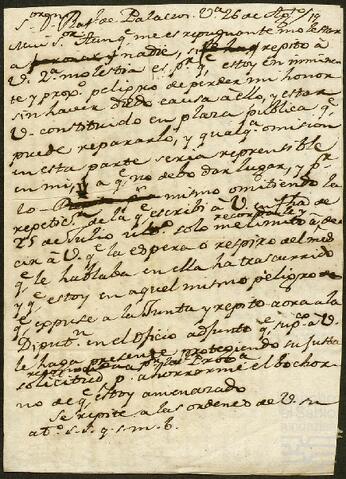 S.or D.n Raf.l de Palacios. V.a 26 de Ag.to
Mui S.or Aunq.e me es repugnante molestar
a nadie, repito a
V. molestia es p.r q.e estoy en inminen
te y prox.o peligro de perder mi honor
sin haver dado causa a ello, y estar
V. constituido en plaza publica q.e
puede repararlo, y qualq.a omision
en esta parte seria reprensible
en mi, a q.e no debo dar lugar, y p.r
lo mismo omitiendo la
repetic.n de la q.e escribi a V. en fha de
25 de Julio ult.o solo me limito a de
recordarla y
cir a V. q.e la espera ó respiro del mes
q.e le hablaba en ella ha trascurrido
y q.e estoy en aquel mismo peligro
q.e expuse a la Junta y repito aora a la
Diput.n en el Oficio adjunto q.e sup.co a V.
le haga presente protegiendo su justa
solicitud p.a ahorrarme el bochor
no de q.e estoy amenazado
Se repite a las ordenes de V. su
at.o s. s. q. s. m. b.